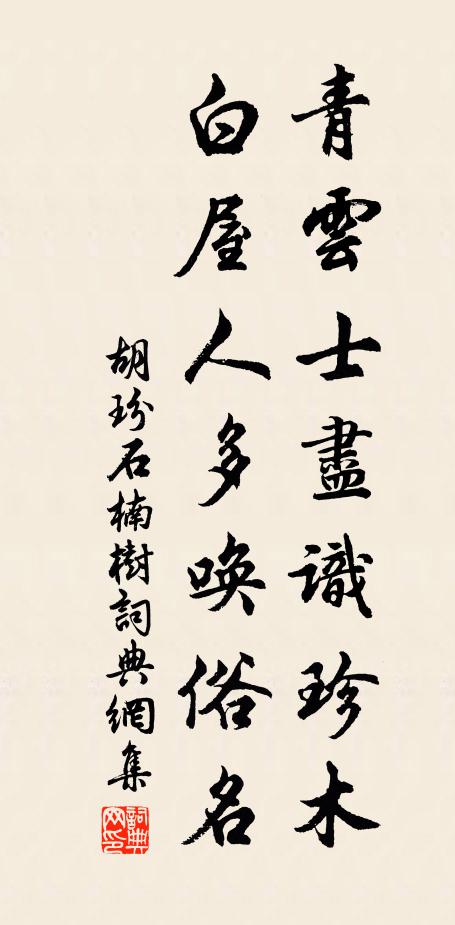 青雲士盡識珍木
白屋人多唤俗名
胡玢石楠樹詞典網集
詞典网印